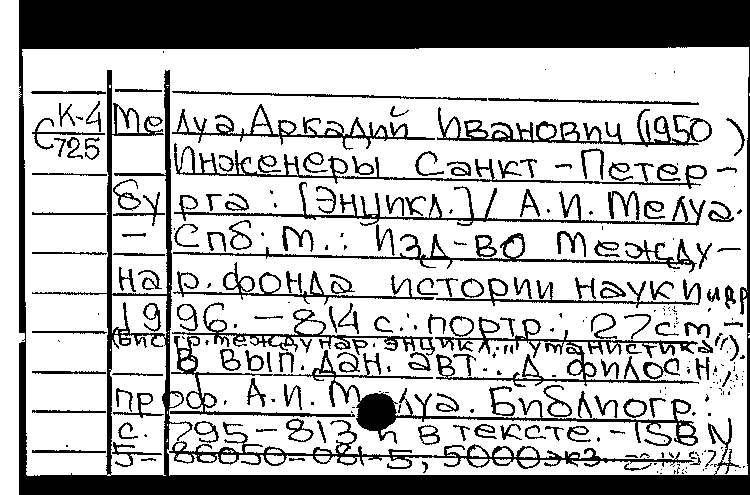 К-4
С 725
Мелуа, Аркадий Иванович (1950 )
Инженеры Санкт-Петер-
бурга : [Энцикл.] / А.И. Мелуа.
- Спб ; М. : Изд-во Между-
нар. фонда истории науки и др
1996. - 814 с. : портр. ; 27 cm. -
(Биогр. междунар. энцикл. "Гуманистика").
В вып. дан. авт.: д. филос. н.,
проф. А.И. Мелуа. Библиогр.:
с. 795-813 и в тексте. - ISBN
5-86050-081-5, 5000экз.